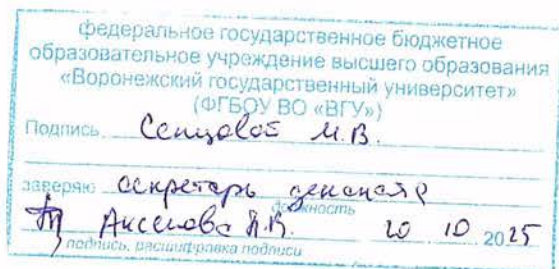 федеральное государственное бюджетное
образовательное учреждение высшего образования
«Воронежский государственный университет»
(ФГБОУ ВО «ВГУ»)
Подпись М.В.
заверяю секретарь деканата
должность
20 10 2025
подпись, расшифровка подписи